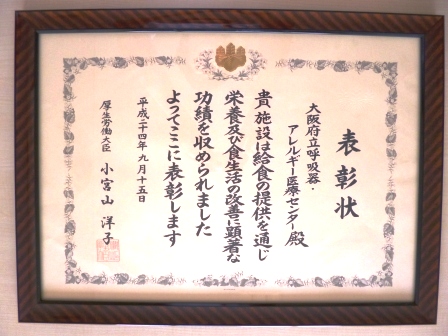 表彰状
大阪府立呼吸器・
アレルギー医療センター殿
貴施設は給食の提供を通じ
栄養及び食生活の改善に顕著な
功績を収められました
よってここに表彰します
平成二十四年九月十五日
厚生労働大臣 小宮山洋子